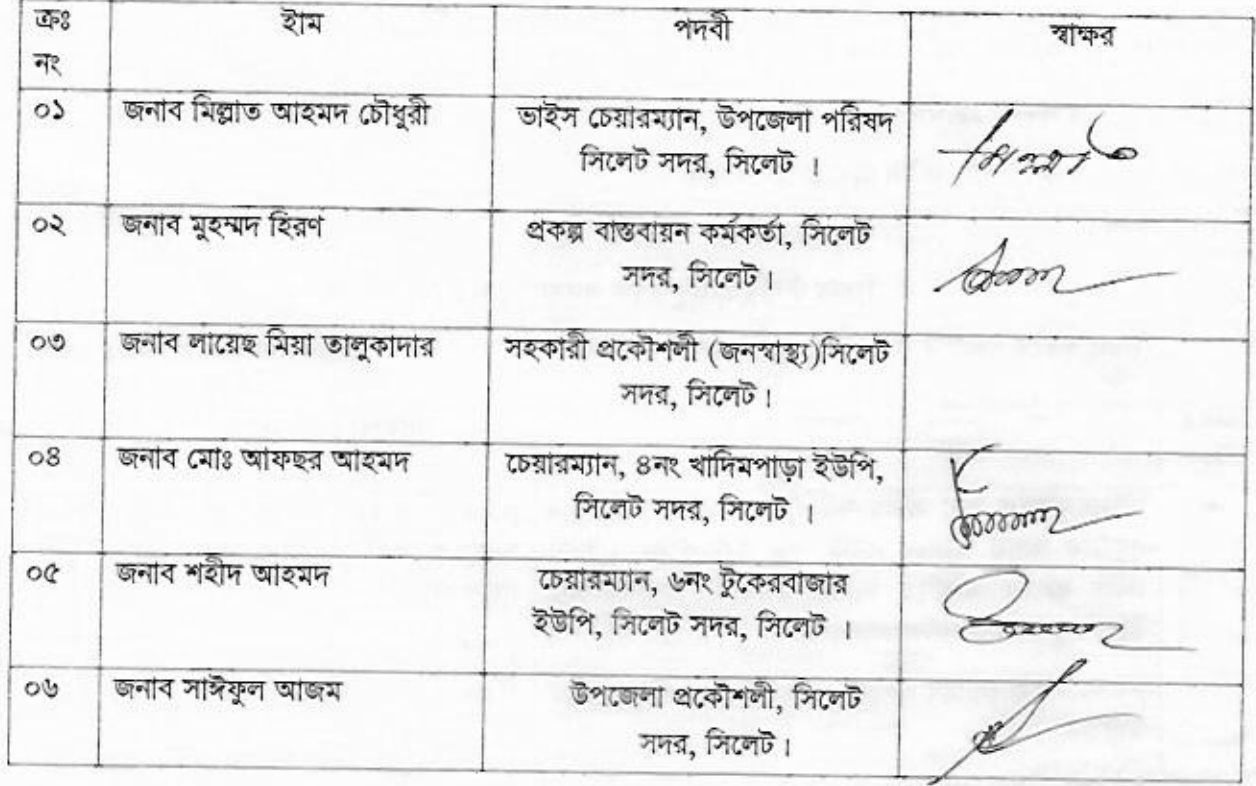 ক্রঃ নং ইাম পদবী স্বাক্ষর
০১ জনাব মিল্লাত আহমদ চৌধুরী ভাইস চেয়ারম্যান, উপজেলা পরিষদ
সিলেট সদর, সিলেট । মিল্লাত
০২ জনাব মুহম্মদ হিরণ প্রকল্প বাস্তবায়ন কর্মকর্তা, সিলেট
সদর, সিলেট।
০৩ জনাব লায়েছ মিয়া তালুকাদার সহকারী প্রকৌশলী (জনস্বাস্থ্য)সিলেট
সদর, সিলেট।
০৪ জনাব মোঃ আফছর আহমদ চেয়ারম্যান, ৪নং খাদিমপাড়া ইউপি,
সিলেট সদর, সিলেট ।
০৫ জনাব শহীদ আহমদ চেয়ারম্যান, ৬নং টুকেরবাজার
ইউপি, সিলেট সদর, সিলেট ।
০৬ জনাব সাঈফুল আজম উপজেলা প্রকৌশলী, সিলেট
সদর, সিলেট।